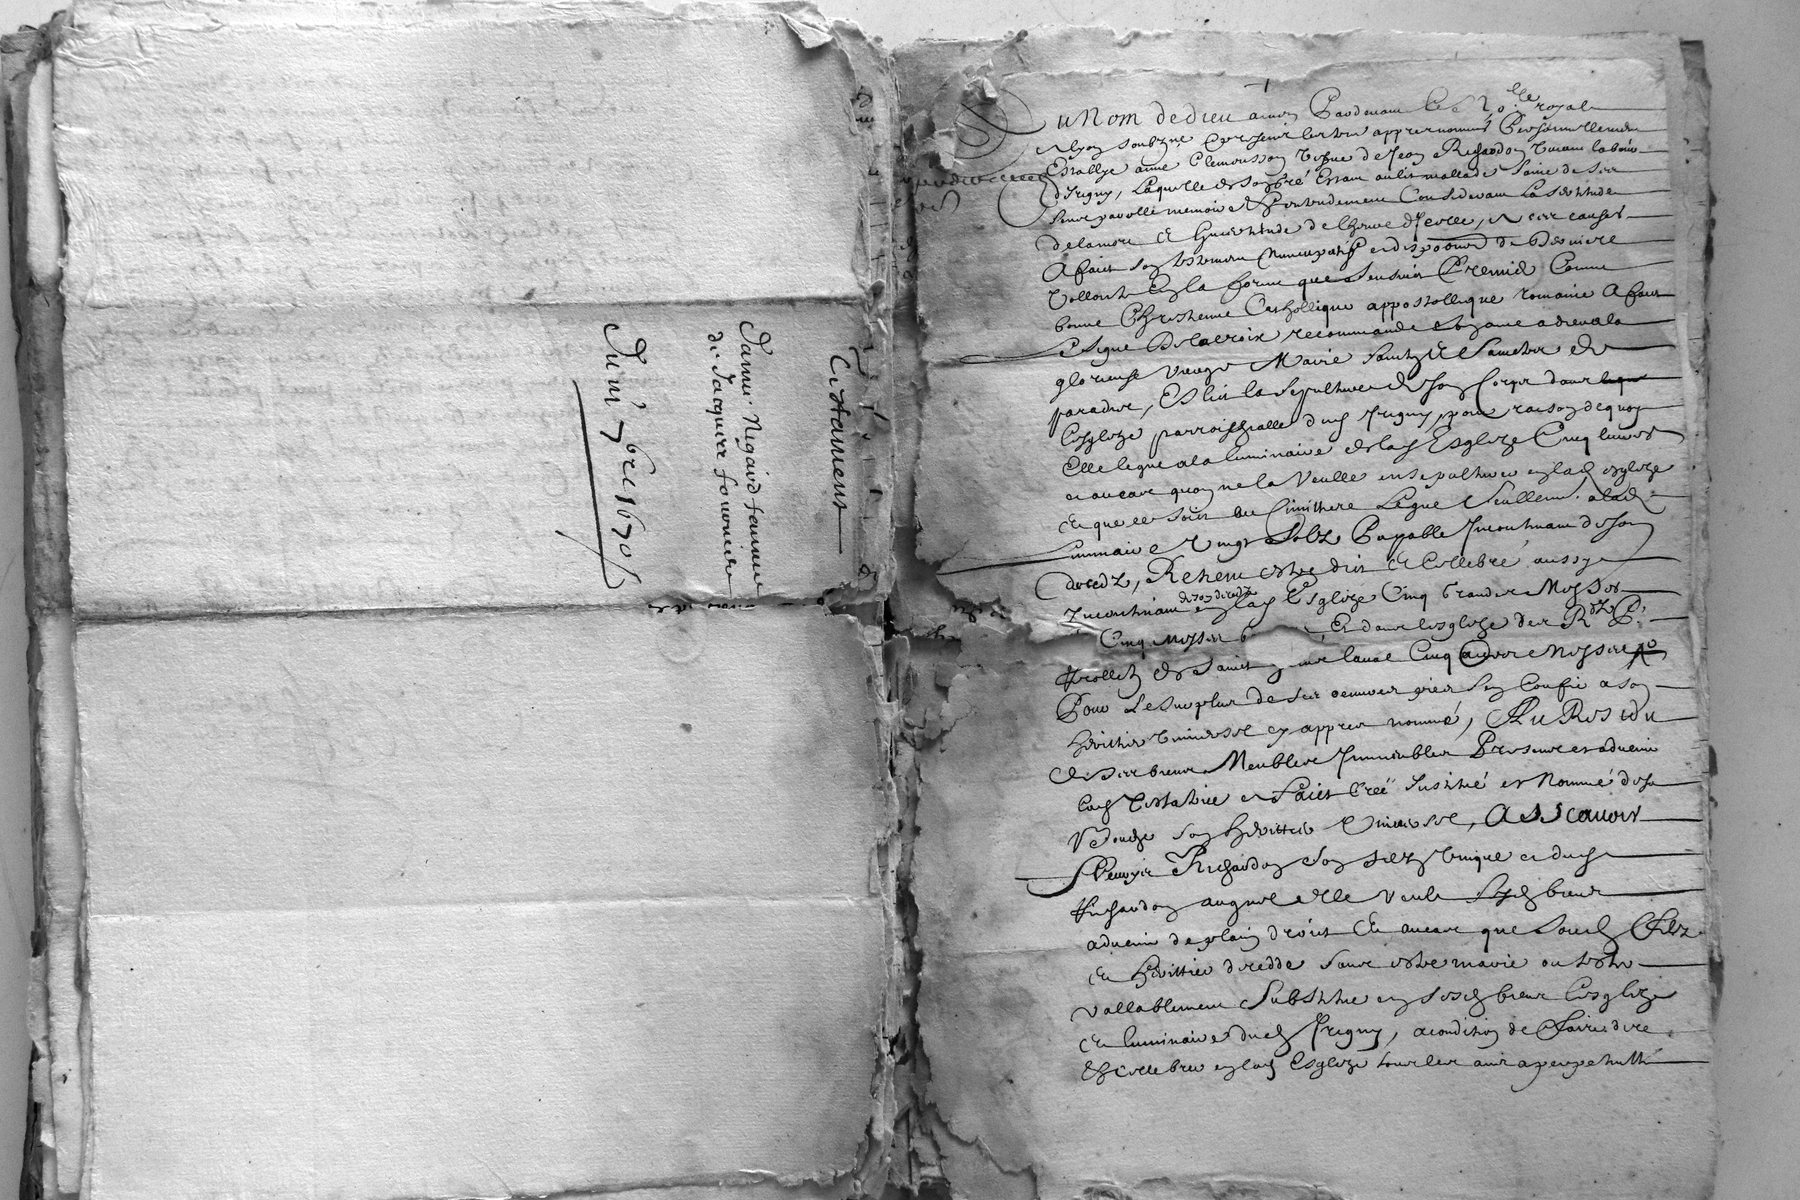 Testament
d'anne Negaird femme
de Jacquier fournier
du m.e 7bre 1670
Au Nom de dieu amen Pardevant le No.re royal
a lyon soubzné Et presents les tesmoings appres nommés Personnellement
Establye anne Clemousson vefve de Jean Richardon vivant labour
d'Irigny, Laquelle de son gré Estant au lict mallade Saine de ses
sens parolle memoire Et Entendement Considerant La certitude
de la mort Et Incertitude de l'heure d'Icelle, et a ces causes
A faict son testament Nuncupatif et disposition de derniere
vollonté En la forme que s'ensuit Premier Comme
bonne Chrestienne Catholique appostollique romaine A faict
le signe De la croix recommandé son ame a dieu a la
glorieuse vierge Marie Saintz Et Sainctes de
paradis, Eslit la sepulture de son Corps dans
l'esglize parroissialle dud Irigny, pour raison de quoy
Elle legue a la luminaire de lad Esglize Cinq livres
et au cas qu'on ne la veulle ensepulturer en lad esglize
Et que ce soit au Cimithere Legue Seullement a lad
Luminaire vingt solz Payable Incontinant son
decedz, Item estre dict Et Cellebré aussy
Incontinant son decedz en lad Esglize Cinq Grandes Messes
Cinq messes Et dans l'esglize des R.dz P.
de Sainct laval Cinq autres Messes
Pour Le surplus de ses oeuvres pies s'en confie a son
heritier universel cy appres nommé, Au Residu
De ses biens Meubles Immeubles Presents et advenir
lad Testatrice a Faict Creé Institué et Nommé de sa
Bouche son heritier Universel, Assavoir
Richardon son filz unique et dud
Richardon auquel elle veult sesd biens
advenir de plain droict Et au cas que soud Filz
Et heritier decedde sans estre marié ou tester
vallablement Substitue en sesd biens l'esglize
Et luminaire dud Irigny, a condition de Faire dire
Et Cellebrer en lad Esglize tous les ans a perpetuitté